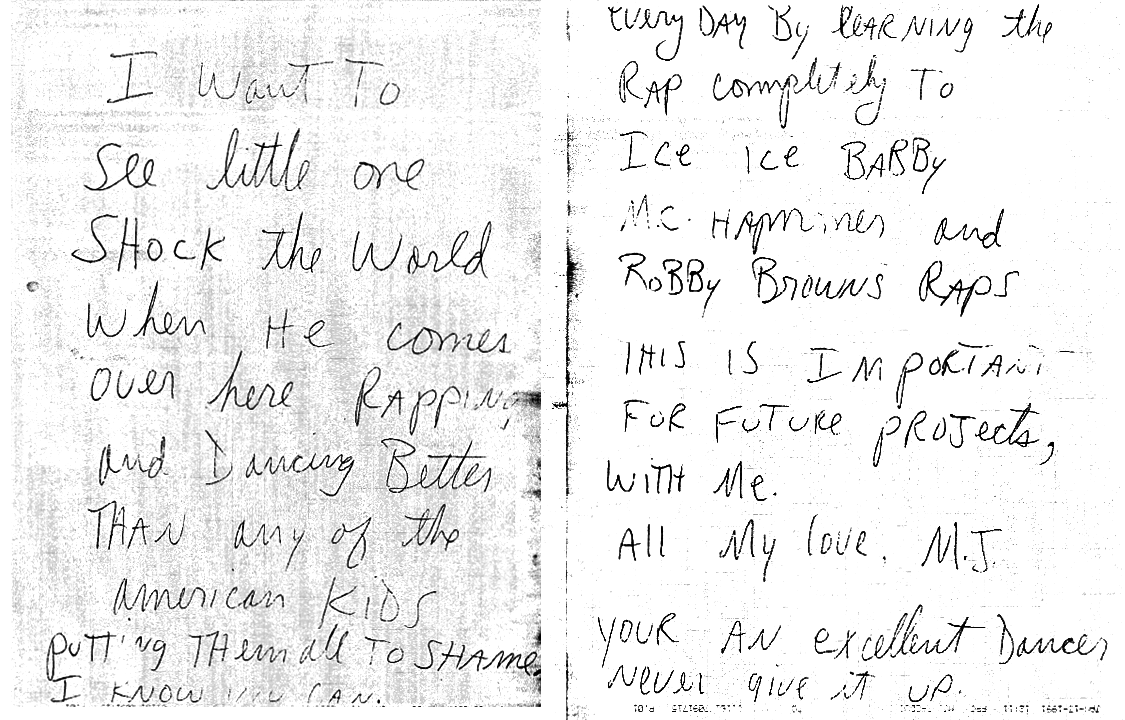 I Want To
See little one
SHock the World
When He comes
over here RAppINg
and Dancing Better
THAN any of the
american KiDS
puTTing THem all To SHAme
I KNOW YOU CAN.
every DAY By leARNING the
RAP completely To
Ice ice BABBy
M.C. HAmmers and
RoBBy BROWNS RAPS
THIS IS IMpORTANT
FOR FUTURE pROJects,
WITH Me.
All My love. M.J.
YOUR AN excellent Dancer
Never give it UP.